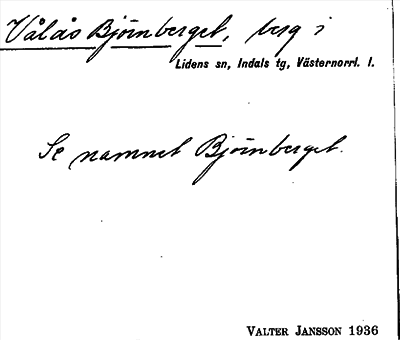 Vålås Björnberget, berg i
Lidens sn, Indals tg, Västernorrl. l.
Se namnet Björnberget.
VALTER JANSSON 1936